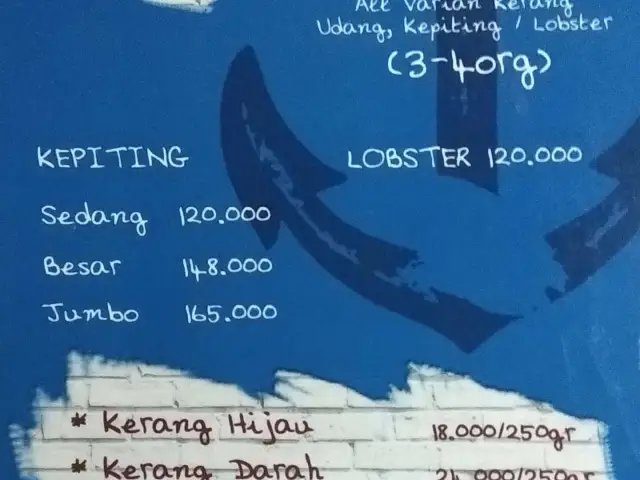 All Varian Kerang
Udang, Kepiting / Lobster
(3-4org)
KEPITING
Sedang 120.000
Besar 148.000
Jumbo 165.000
LOBSTER 120.000
* Kerang Hijau 18.000/250gr
* Kerang Darah 21.000/250gr